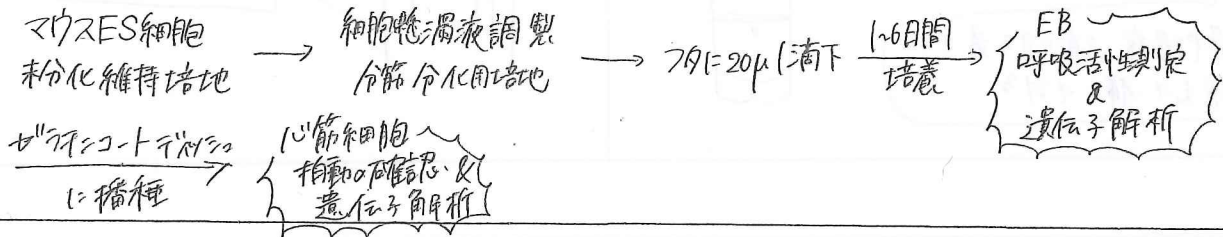 マウスES細胞
未分化維持培地
→
細胞懸濁液調製
分筋分化用培地
→
フタに20μl滴下
1~6日間
培養
EB
呼吸活性測定
&
遺伝子解析
ゼラチンコートディッシュ
に播種
心筋細胞
拍動の確認&
遺伝子解析